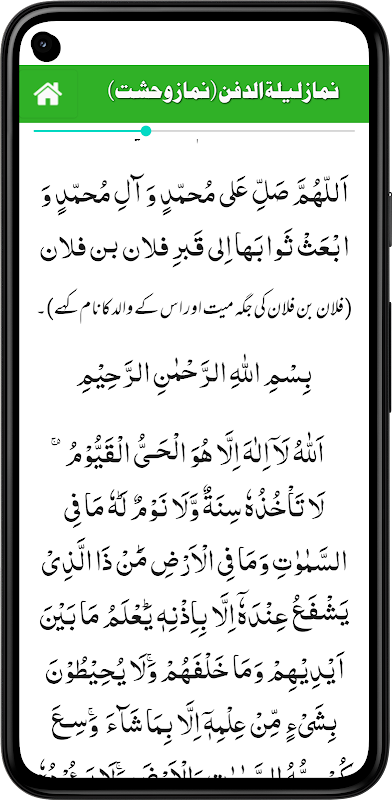 نماز لیلۃ الدفن (نماز وحشت)
اَللّٰهُمَّ صَلِّ عَلٰى مُحَمَّدٍ وَ آلِ مُحَمَّدٍ وَ
ابْعَثْ ثَوَابَهَا اِلٰى قَبرِ فلان بن فلان
(فلان بن فلان کی جگہ میت اور اس کے والد کا نام کہے)۔
بِسْمِ اللّٰهِ الرَّحْمٰنِ الرَّحِيْمِ
اَللّٰهُ لَاۤ اِلٰهَ اِلَّا هُوَ الْحَیُّ الْقَيُّوْمُ ۚ
لَا تَاْخُذُهٗ سِنَةٌ وَّلَا نَوْمٌ لَهٗ مَا فِی
السَّمٰوٰتِ وَمَا فِی الْاَرْضِ مَنْ ذَا الَّذِیْ
يَشْفَعُ عِنْدَهٗۤ اِلَّا بِاِذْنِهٖ يَعْلَمُ مَا بَيْنَ
اَيْدِيْهِمْ وَمَا خَلْفَهُمْ ۚ وَلَا يُحِيْطُوْنَ
بِشَیْءٍ مِّنْ عِلْمِهٖۤ اِلَّا بِمَا شَآءَ ۚ وَسِعَ